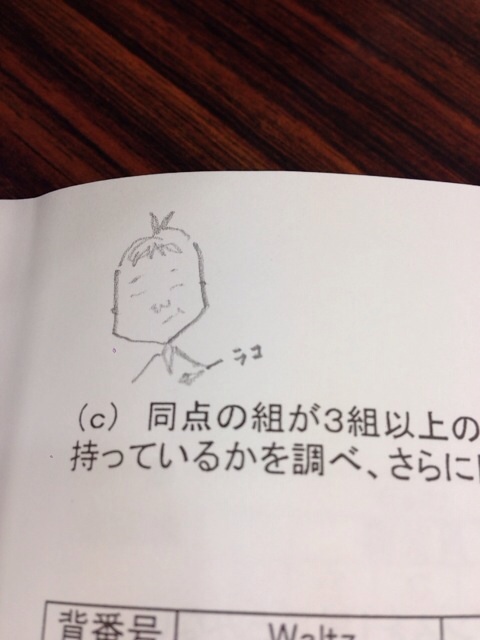 ラコ
(c) 同点の組が3組以上の
持っているかを調べ、さらに
背番号 Waltz